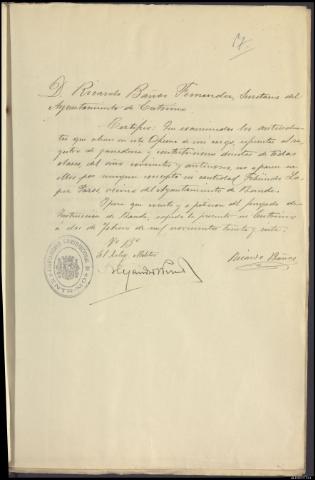 D. Ricardo Bañós Fernandez, Secretario del
Ayuntamiento de Entrimo
Certifico: Que examinados los anteceden-
tes que obran en esta Oficina de mi cargo, referentes al re-
gistro de ganaderia y contribuciones directas de todas
clases, del año corriente y anteriores, no aparece
por ningun concepto en cantidad Fabindo Ló-
pez Perez, vecino del Ayuntamiento de Bande.
Y para que conste y a peticion del juzgado de
Instrucción de Bande, expido la presente en Entrimo
a dos de Febrero de mil novecientos treinta y siete.
Vº Bº
El Militar
Ricardo Bañós